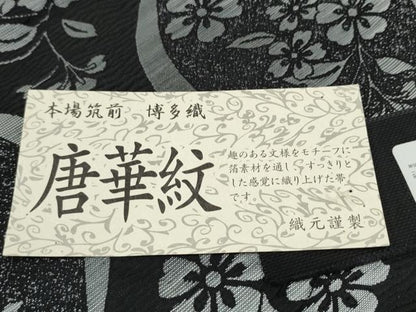 本場筑前 博多織
唐華紋
趣のある文様をモチーフに
箔素材を通し、すっきりと
した感覚に織り上げた帯
です。
織元謹製